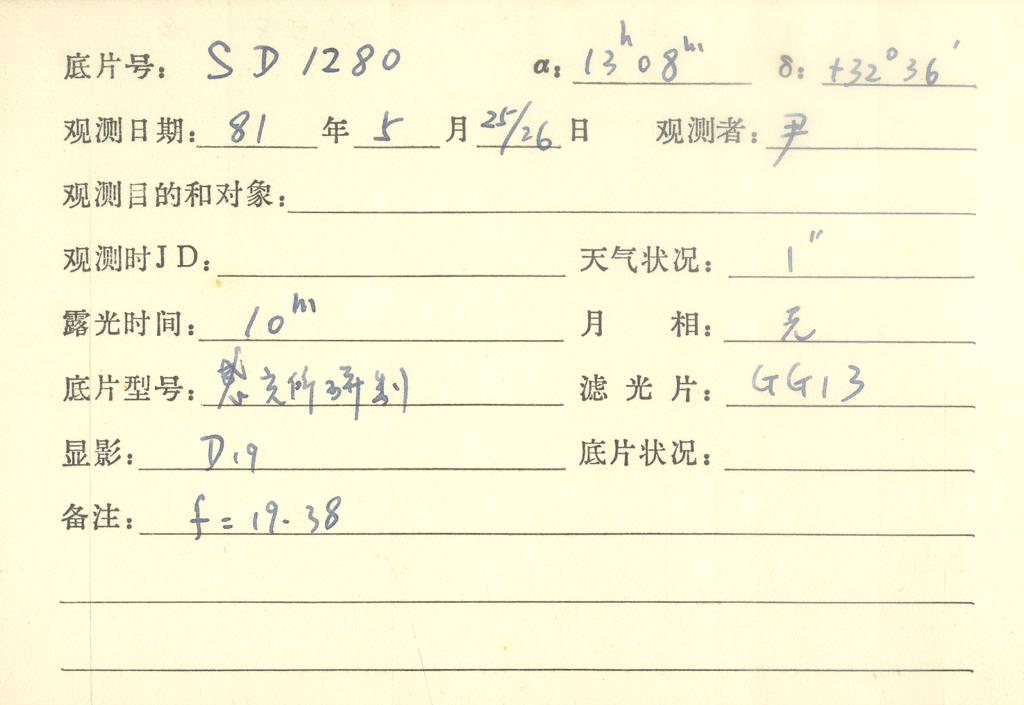 底片号: SD1280 α: 13h08m δ: +32°36′
观测日期: 81 年 5 月 25/26 日 观测者: 尹
观测目的和对象:
观测时JD: 天气状况: 1″
露光时间: 10m 月 相: 无
底片型号: 感光所研制 滤光片: GG13
显影: D19 底片状况:
备注: f=19.38